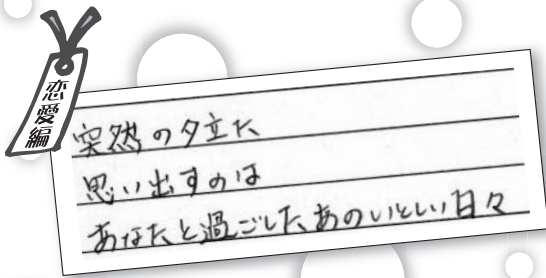 恋愛編
突然の夕立た
思い出すのは
あなたと過ごしたあのいとしい日々